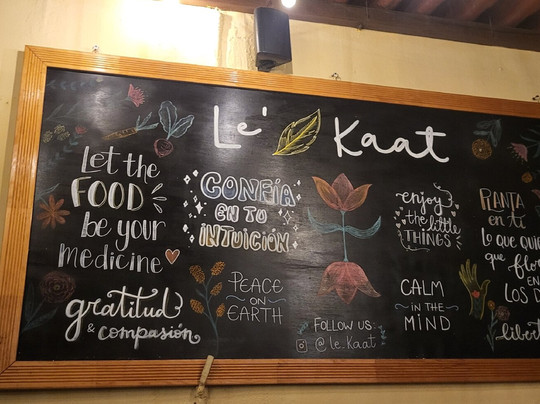 Le' Kaat
Let the
FOOD
be your
medicine
gratitud
& compasión
CONFÍA
EN TU
INTUICIÓN
PEACE
ON
EARTH
FOLLOW US:
@le.kaat
enjoy
the little
THINGS
CALM
IN THE
MIND
PLANTA
en ti
lo que
que
EN
LOS